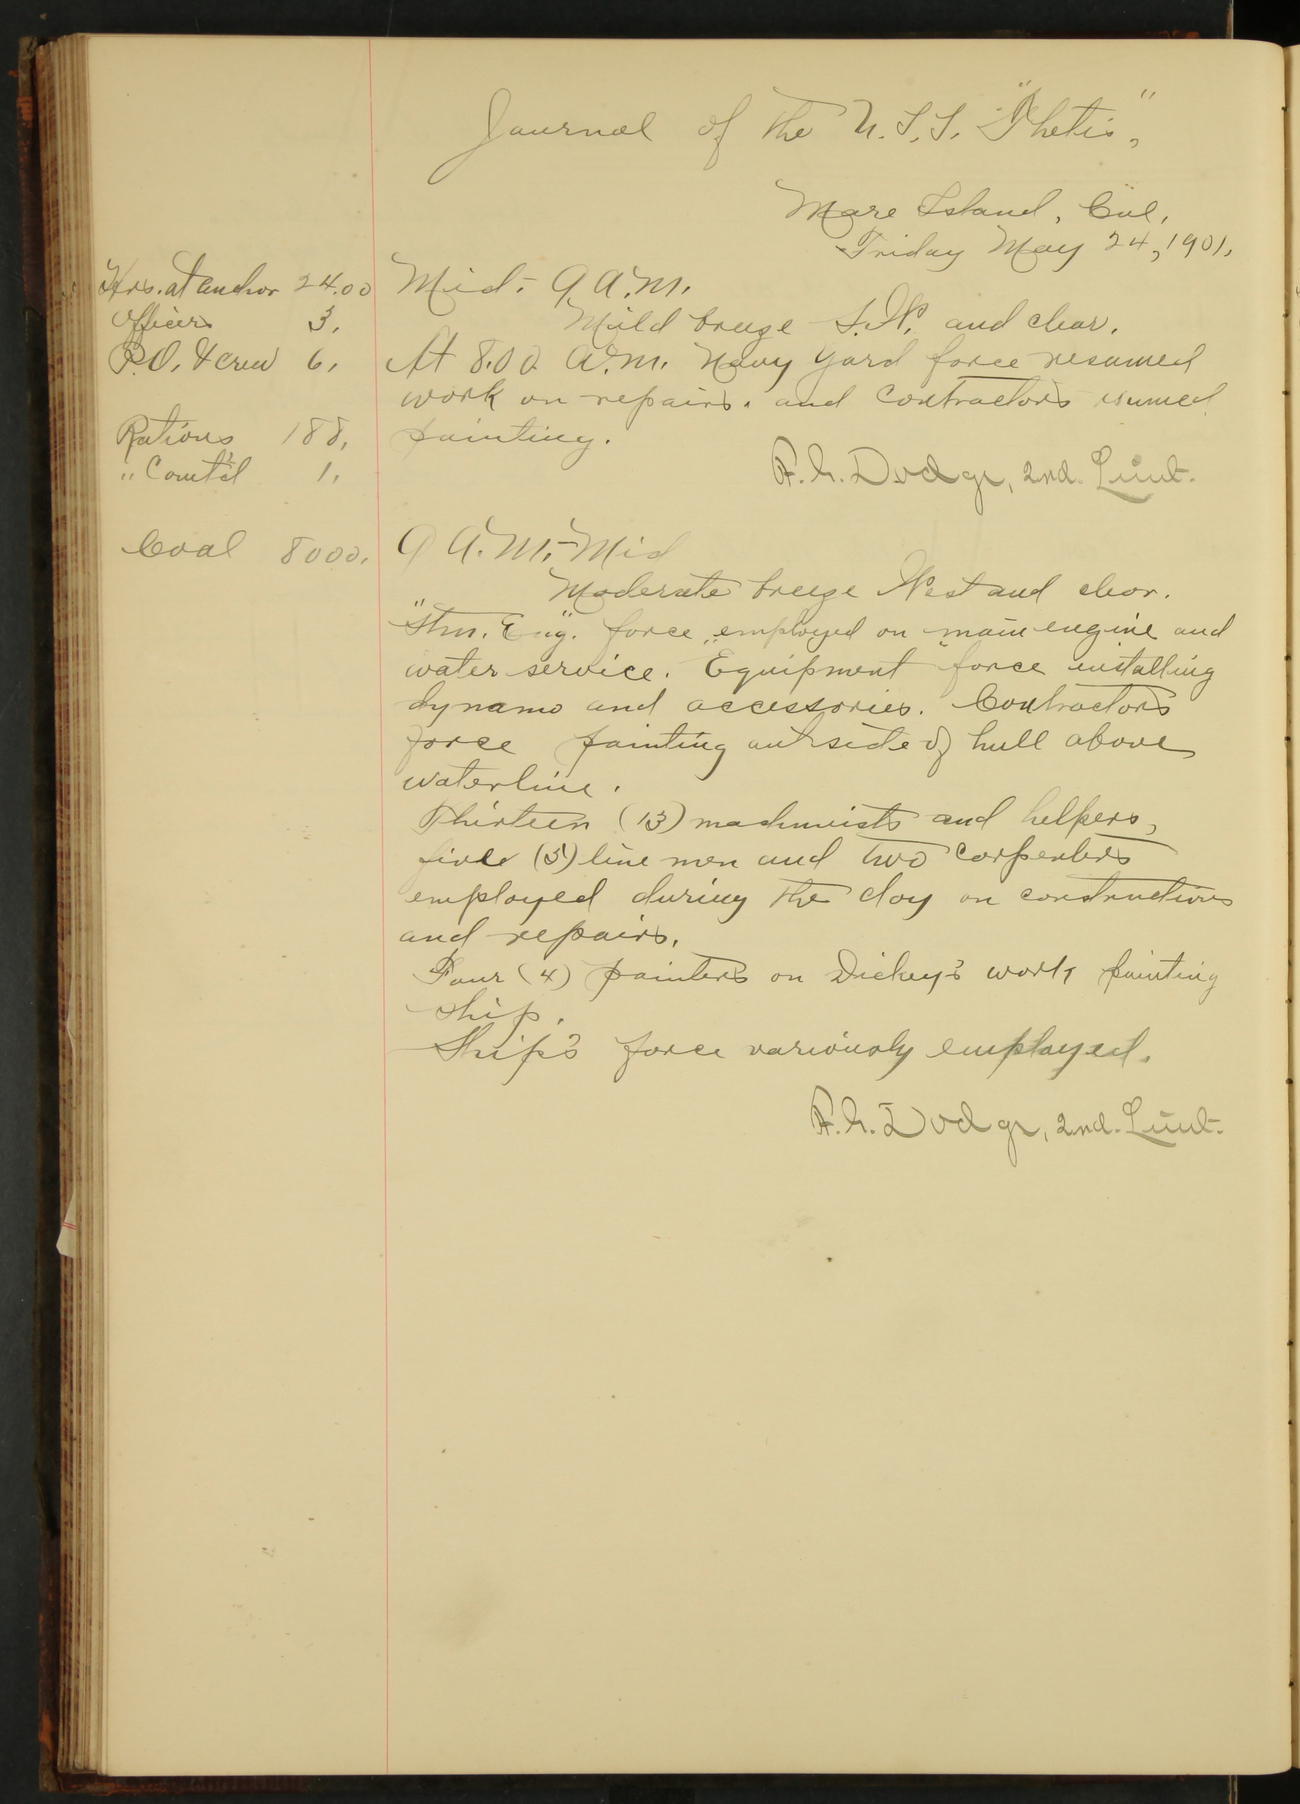 Journal of the U.S.S. "Thetis",
Mare Island, Cal,
Friday May 24, 1901.
Hrs. at anchor 24.00
Officers 3.
P.O. & crew 6.
Rations 188.
" Comt'd 1.
Coal 8000.
Mid.- 9 A.M.
Mild breeze S.W. and clear.
At 8.00 A.M. Navy Yard force resumed
work on repairs. and contractors resumed
painting.
F. G. Dodge, 2nd. Lieut.
9 A.M.- Mid
Moderate breeze West and clear.
"Stm. Eng". force employed on main engine and
water service. "Equipment" force installing
dynamo and accessories. Contractors
force painting outside of hull above
waterline.
Thirteen (13) machinists and helpers,
five (5) line men and two carpenters
employed during the day on construction
and repairs.
Four (4) painters on Dickey's work painting
ship.
Ship's force variously employed.
F. G. Dodge, 2nd. Lieut.